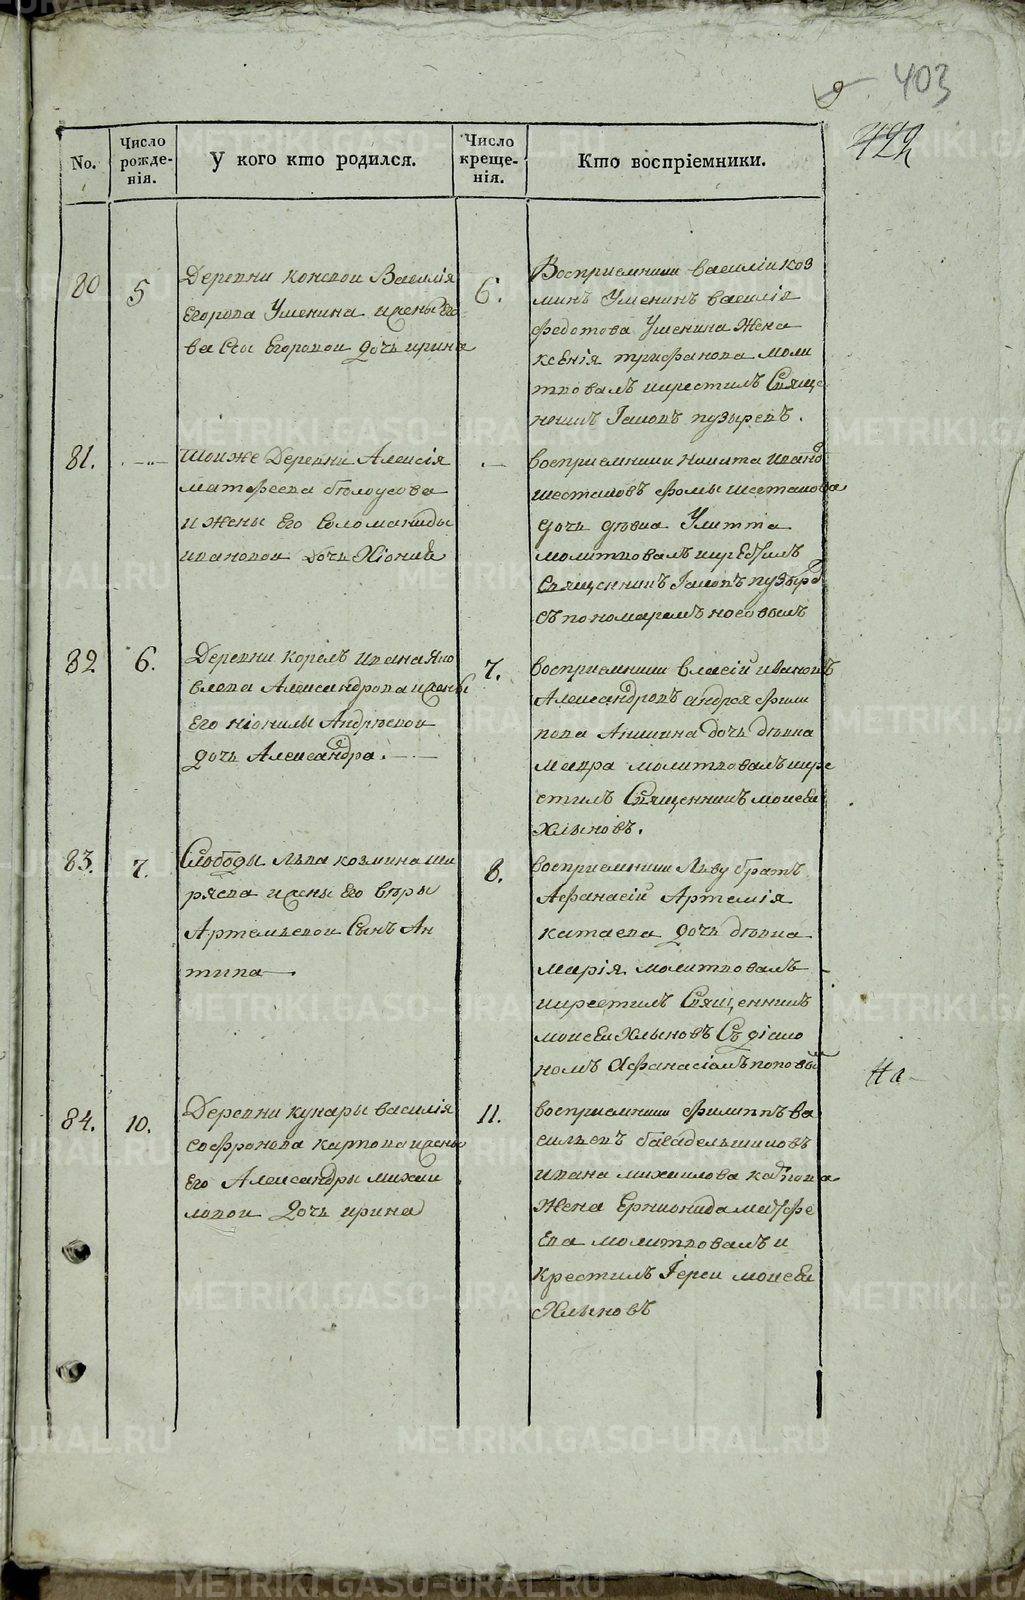 403
422
No.
Число рожде-нія.
У кого кто родился.
Число креще-нія.
Кто воспріемники.
80
5
Деревни конской Василія
Егорова Уженина и жены Его
Егоровой дочь ирина
6.
Восприемники василій коз
минъ Уженинъ василія
федотова Уженина жена
ксенія трифанова моли
твовалъ икрестилъ Свяще
нникъ Іаковъ пузыревъ.
81.
тойже Деревни Алексія
матфеева белоусова
и жены Его Соломаниды
ивановой дочь Хіония
восприемники никита ивано
шестаковъ фомы шестакова
дочь девка Улитта
молитвовалъ икрестилъ
Священникъ Іаковъ пузыре
съ пономаремъ носовымъ
82
6.
Деревни корелъ ивана яко
влева Александрова и жены
Его ніонилы Андреевой
дочь Александра.
7.
восприемники власій ивановъ
Александровъ андрея фили
пова дочь девка
мавра молитвовалъ икре
стилъ Священникъ моисей
Хлыновъ.
83.
7.
Слободы льва козмина ши
ряева и жены Его веры
Артемьевой Сынъ Ан
типа
8.
восприемники Льву братъ
Афанасій Артемія
катаева дочь девка
марія молитвовалъ
икрестилъ Священникъ
моисей Хлыновъ Съ діако
номъ Афанасіемъ поповы
На
84.
10.
Деревни кунары василія
софронова карпова и жены
Его Александры михаи
ловой дочь ирина
11.
восприемники филиппъ ва
сильевъ
ивана михаилова карпова
жена матфе
ева молитвовалъ и
крестилъ Іерей моисей
Хлыновъ
METRIKI.GASO-URAL.RU